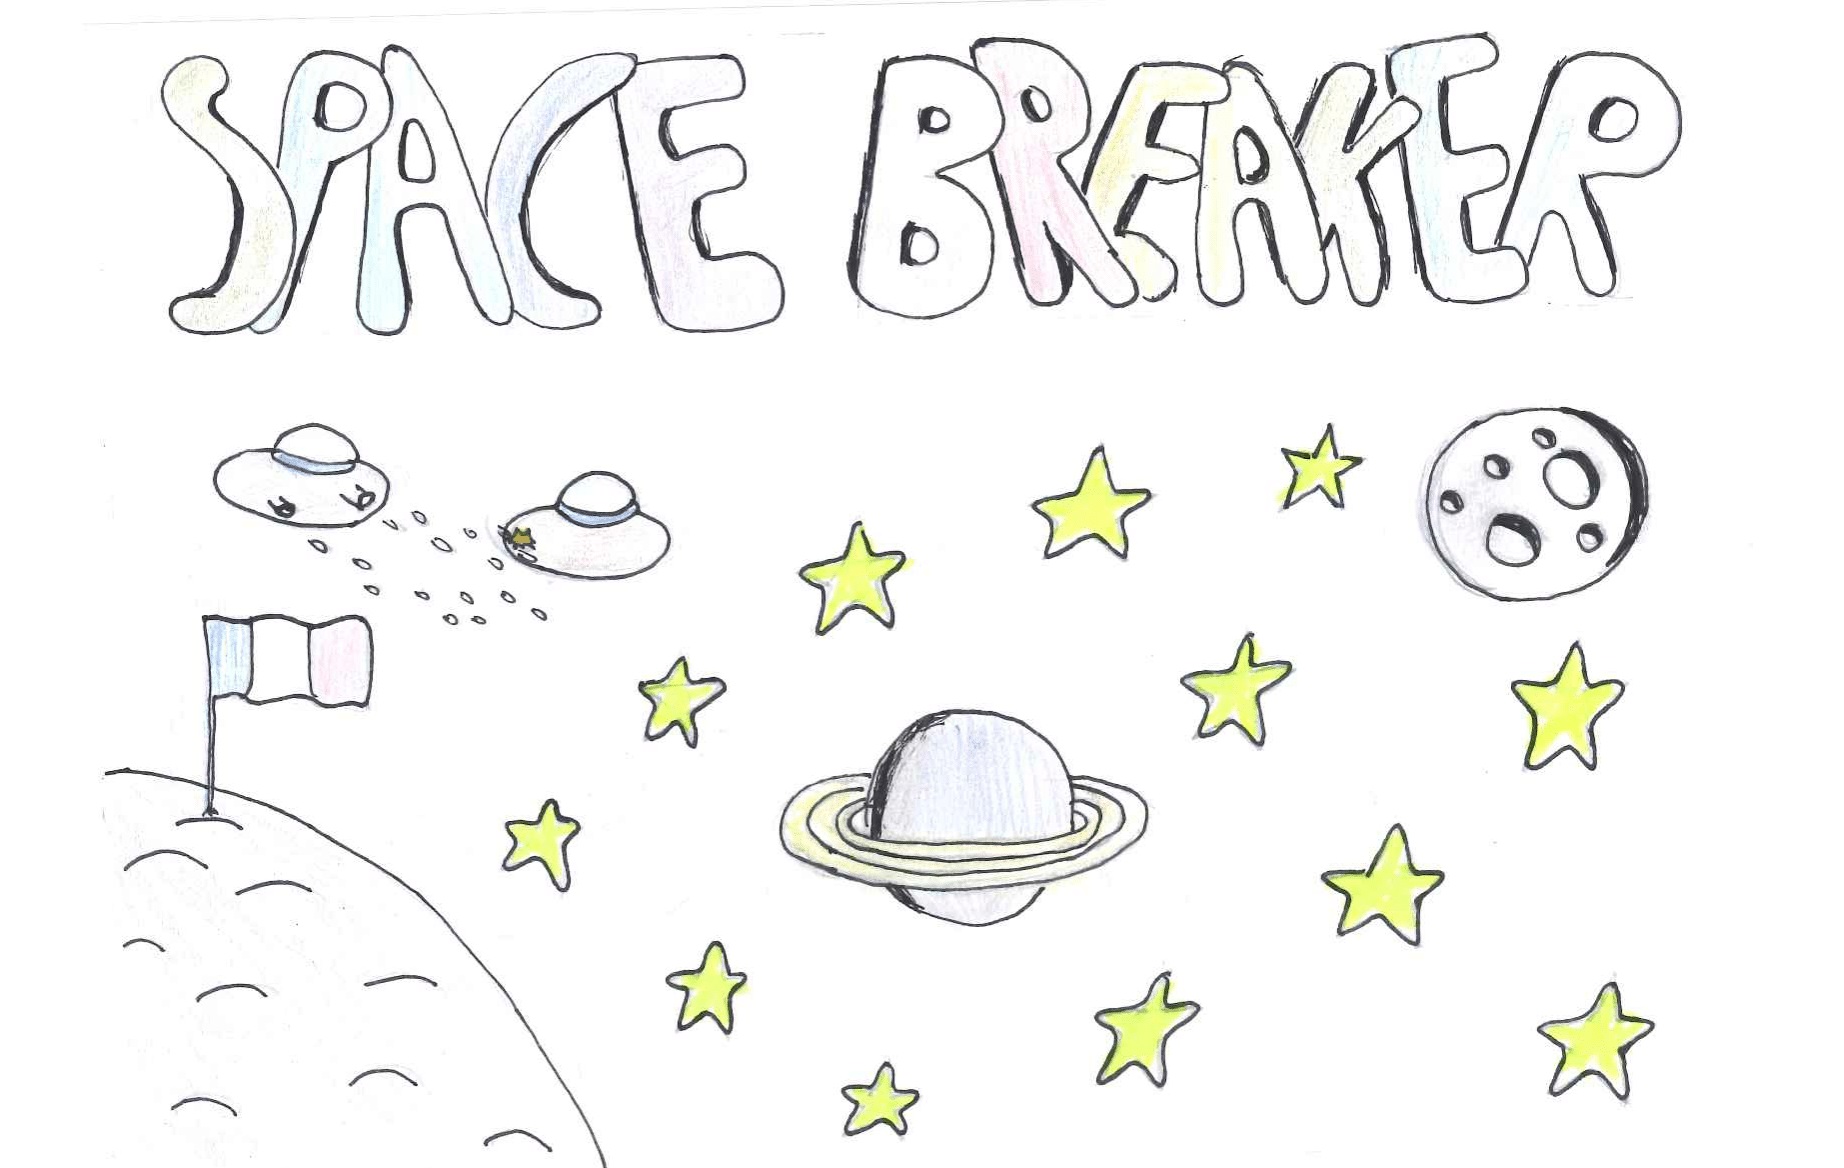 SPACE BREAKER